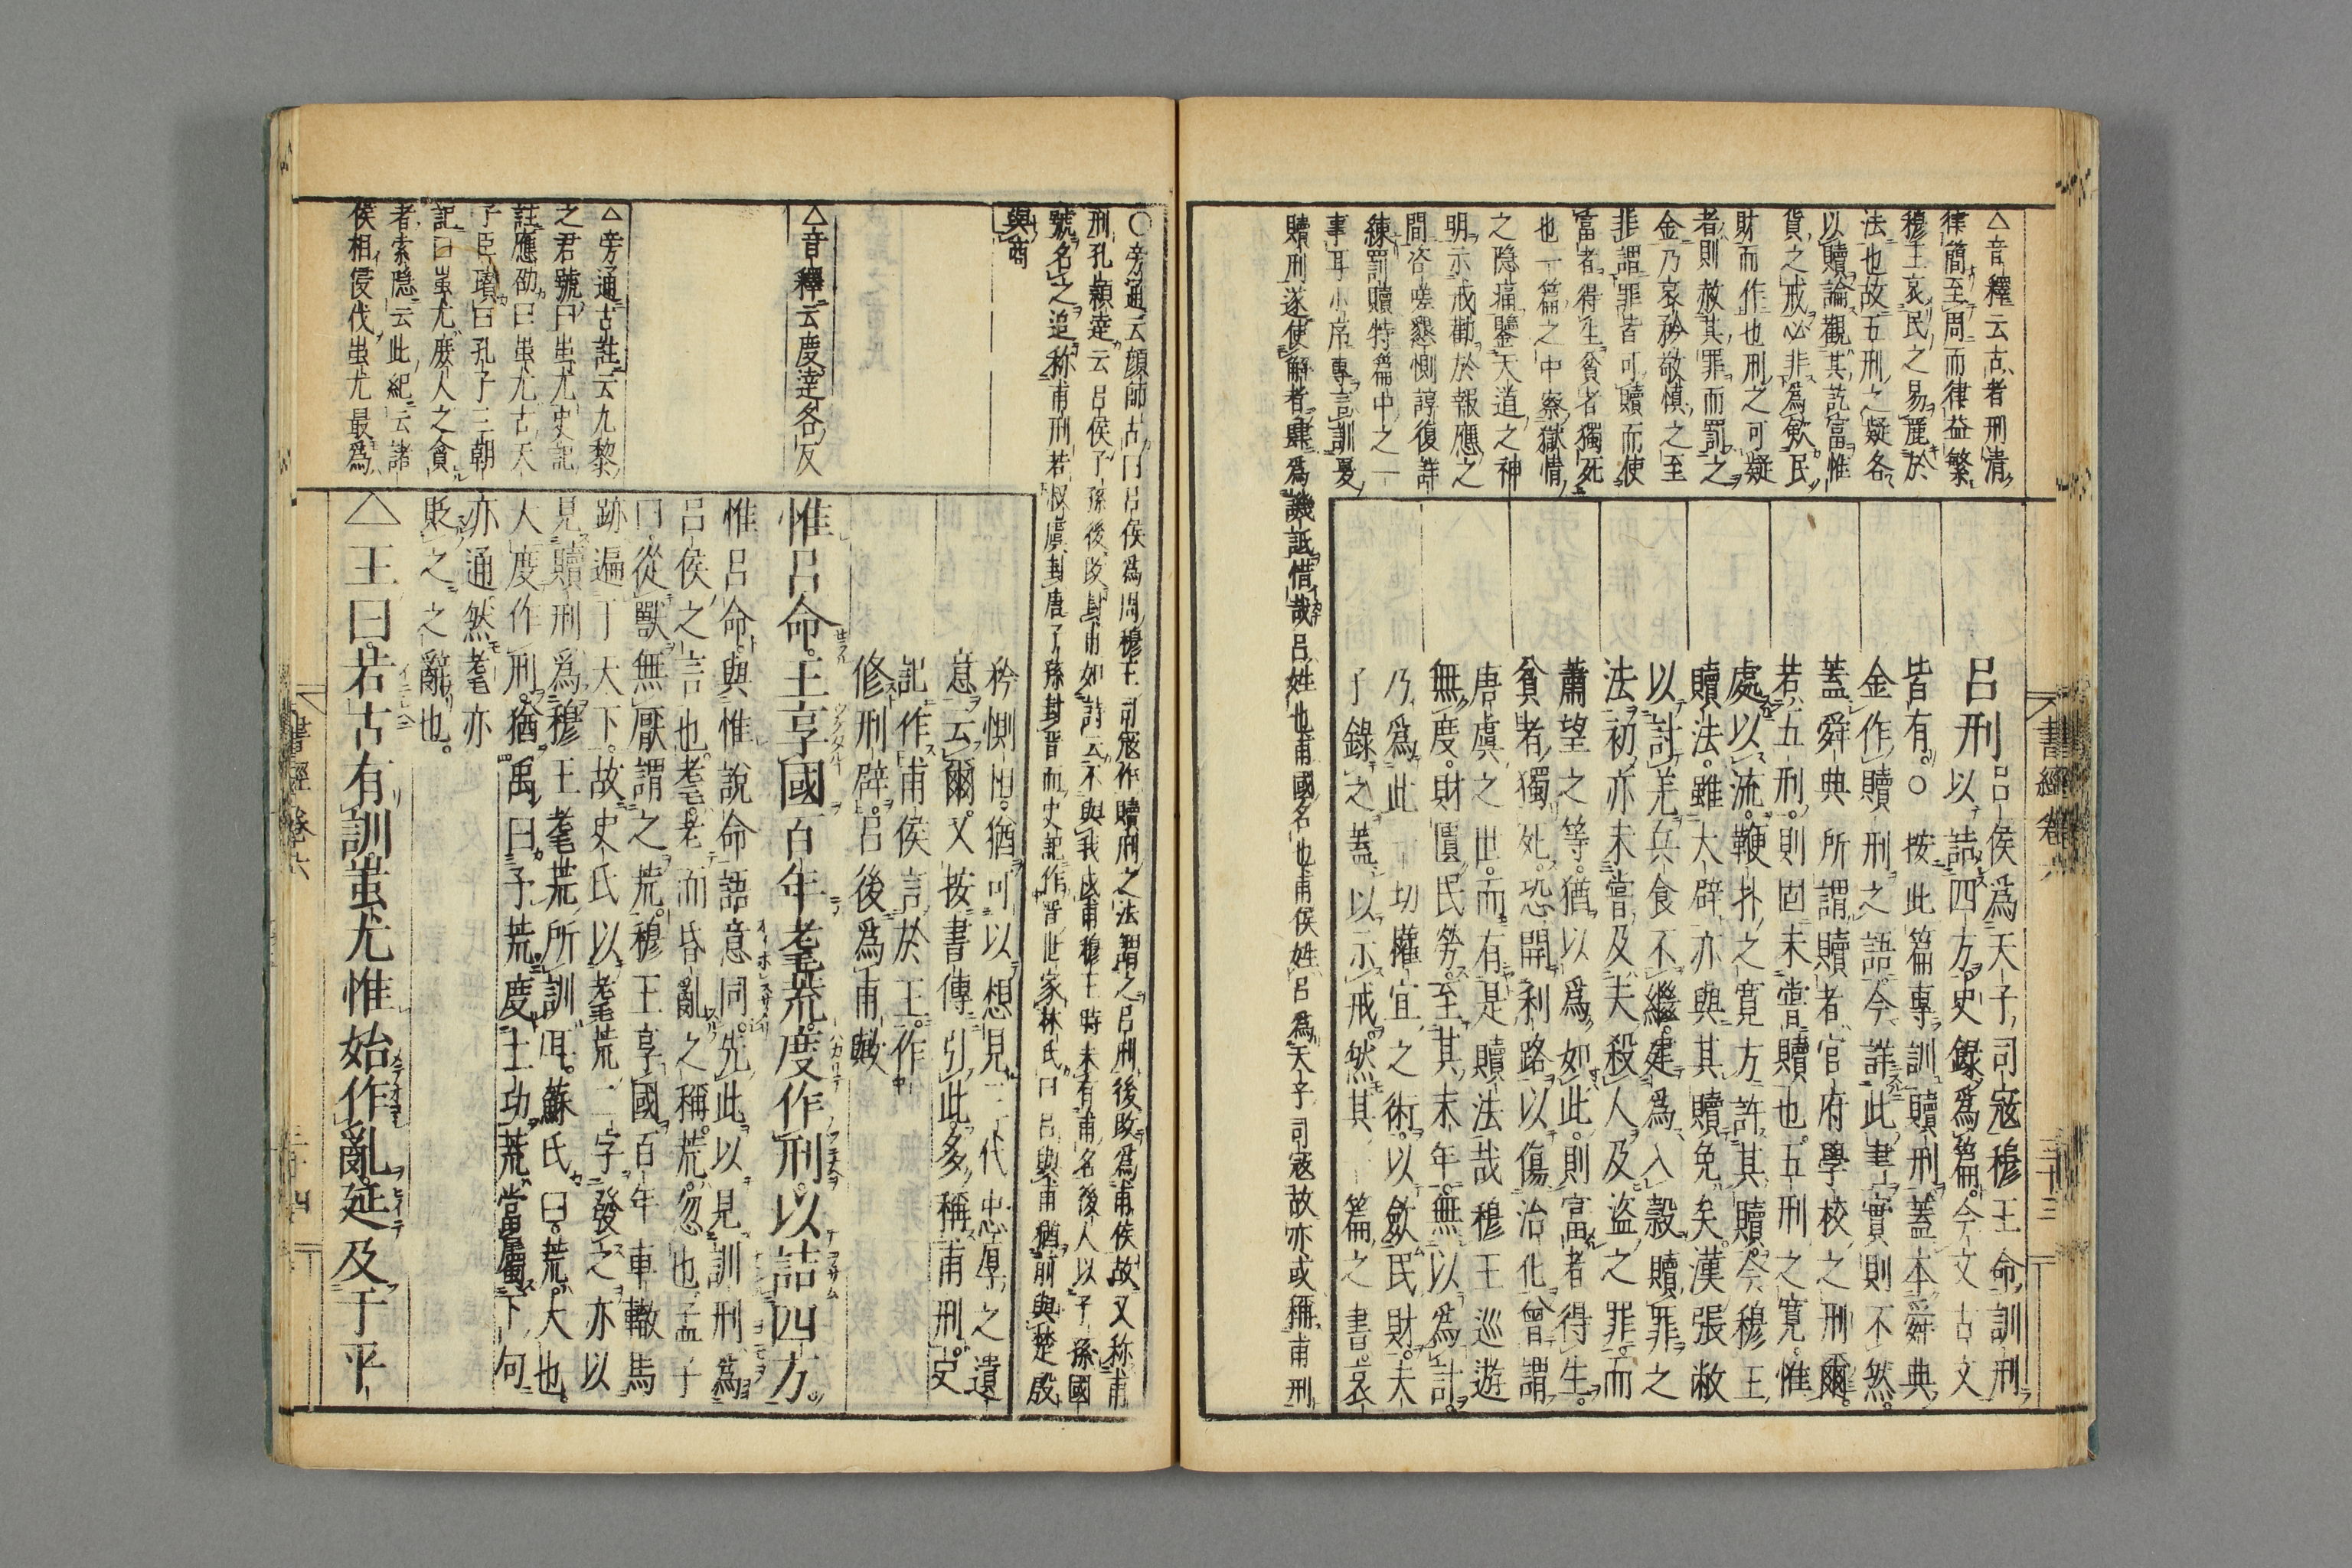 呂刑呂侯爲天子司寇穆王命訓刑
以詰四方史錄爲篇今文古文
皆有○按此篇專訓贖刑蓋本舜典
金作贖刑之語今詳此書實則不然
蓋舜典所謂贖者官府學校之刑爾
若五刑則固未嘗贖也五刑之寬惟
處以流鞭扑之寬方許其贖今穆王
贖法雖大辟亦與其贖免矣漢張敞
以討羌兵食不繼建爲入穀贖罪之
法初亦未嘗及夫殺人及盜之罪而
蕭望之等猶以爲如此則富者得生
貧者獨死恐開利路以傷治化曾謂
唐虞之世而有是贖法哉穆王巡遊
無度財匱民勞至其末年無以爲計
乃爲此一切權宜之術以斂民財夫
子錄之蓋以示戒然其一篇之書哀
△音釋云古者刑清
律簡至周而律益繁
穆王哀民之易麗於
法也故五刑之疑各
以贖論觀其訖富惟
貨之戒必非爲斂民
財而作也刑之可疑
者則赦其罪而罰之
金乃哀矜敬慎之至
非謂罪皆可贖而使
富者得生貧者獨死
也一篇之中察獄情
之隐痛鑒天道之神
明示戒勸於報應之
間咨嗟懇惻諄復詳
練罰贖特篇中之一
事耳小序專言訓夏
贖刑遂使解者肆爲譏詆惜哉呂姓也甫國名也甫侯姓呂爲天子司寇故亦或稱甫刑
○旁通云顔師古曰呂侯爲周穆王司寇作贖刑之法謂之呂刑後改爲甫侯故又称甫
刑孔穎達云呂侯子孫後改封甫如詩云不與我戍甫穆王時未有甫名後人以子孫國
號名之追称甫刑若叔虞封唐子孫封晋而史記作晋世家林氏曰呂與甫猶荊與楚殷
與商
矜惻怛猶可以想見三代忠厚之遺
意云爾又按書傳引此多稱甫刑史
記作甫侯言於王作
修刑辟呂後爲甫歟
惟呂命王享國百年耄荒度作刑以詰四方
△音釋云度達各反
惟呂命與惟說命語意同先此以見訓刑爲
呂侯之言也耄老而昏亂之稱荒忽也孟子
曰從獸無厭謂之荒穆王享國百年車轍馬
跡遍于天下故史氏以耄荒二字發之亦以
見贖刑爲穆王耄荒所訓耳蘇氏曰荒大也
大度作刑猶禹曰予荒度土功荒當屬下句
亦通然耄亦
貶之之辭也
△王曰若古有訓蚩尤惟始作亂延及于平
△旁通古註云九黎
之君號曰蚩尤史記
註應劭曰蚩尤古天
子臣瓚曰孔子三朝
記曰蚩尤庶人之貪
者索隐云此紀云諸
侯相侵伐蚩尤最爲
書經卷六
三十三
書經卷六
三十四